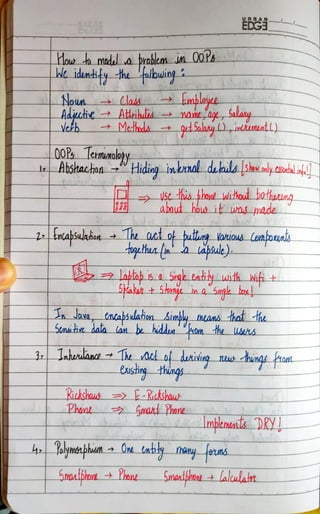 URBAN
EDGE
How to model a problem in OOPs
We identify the following :
Noun → Class → Employee
Adjective → Attributes → name, age, Salary
Verb → Methods → getSalary(), increment()
OOPs Terminology
1. Abstraction → Hiding internal details [Show only essential info!]
⇒ Use this phone without bothering
about how it was made
2. Encapsulation → The act of putting various components
together (in a capsule).
⇒ Laptop is a single entity with Wifi +
Speaker + Storage in a single box!
In Java, encapsulation simply means that the
Sensitive data can be hidden from the users
3. Inheritance → The act of deriving new things from
existing things.
Rickshaw ⇒ E-Rickshaw
Phone ⇒ Smart Phone
Implements DRY!
4. Polymorphism → One entity many forms
Smartphone → Phone Smartphone → Calculator